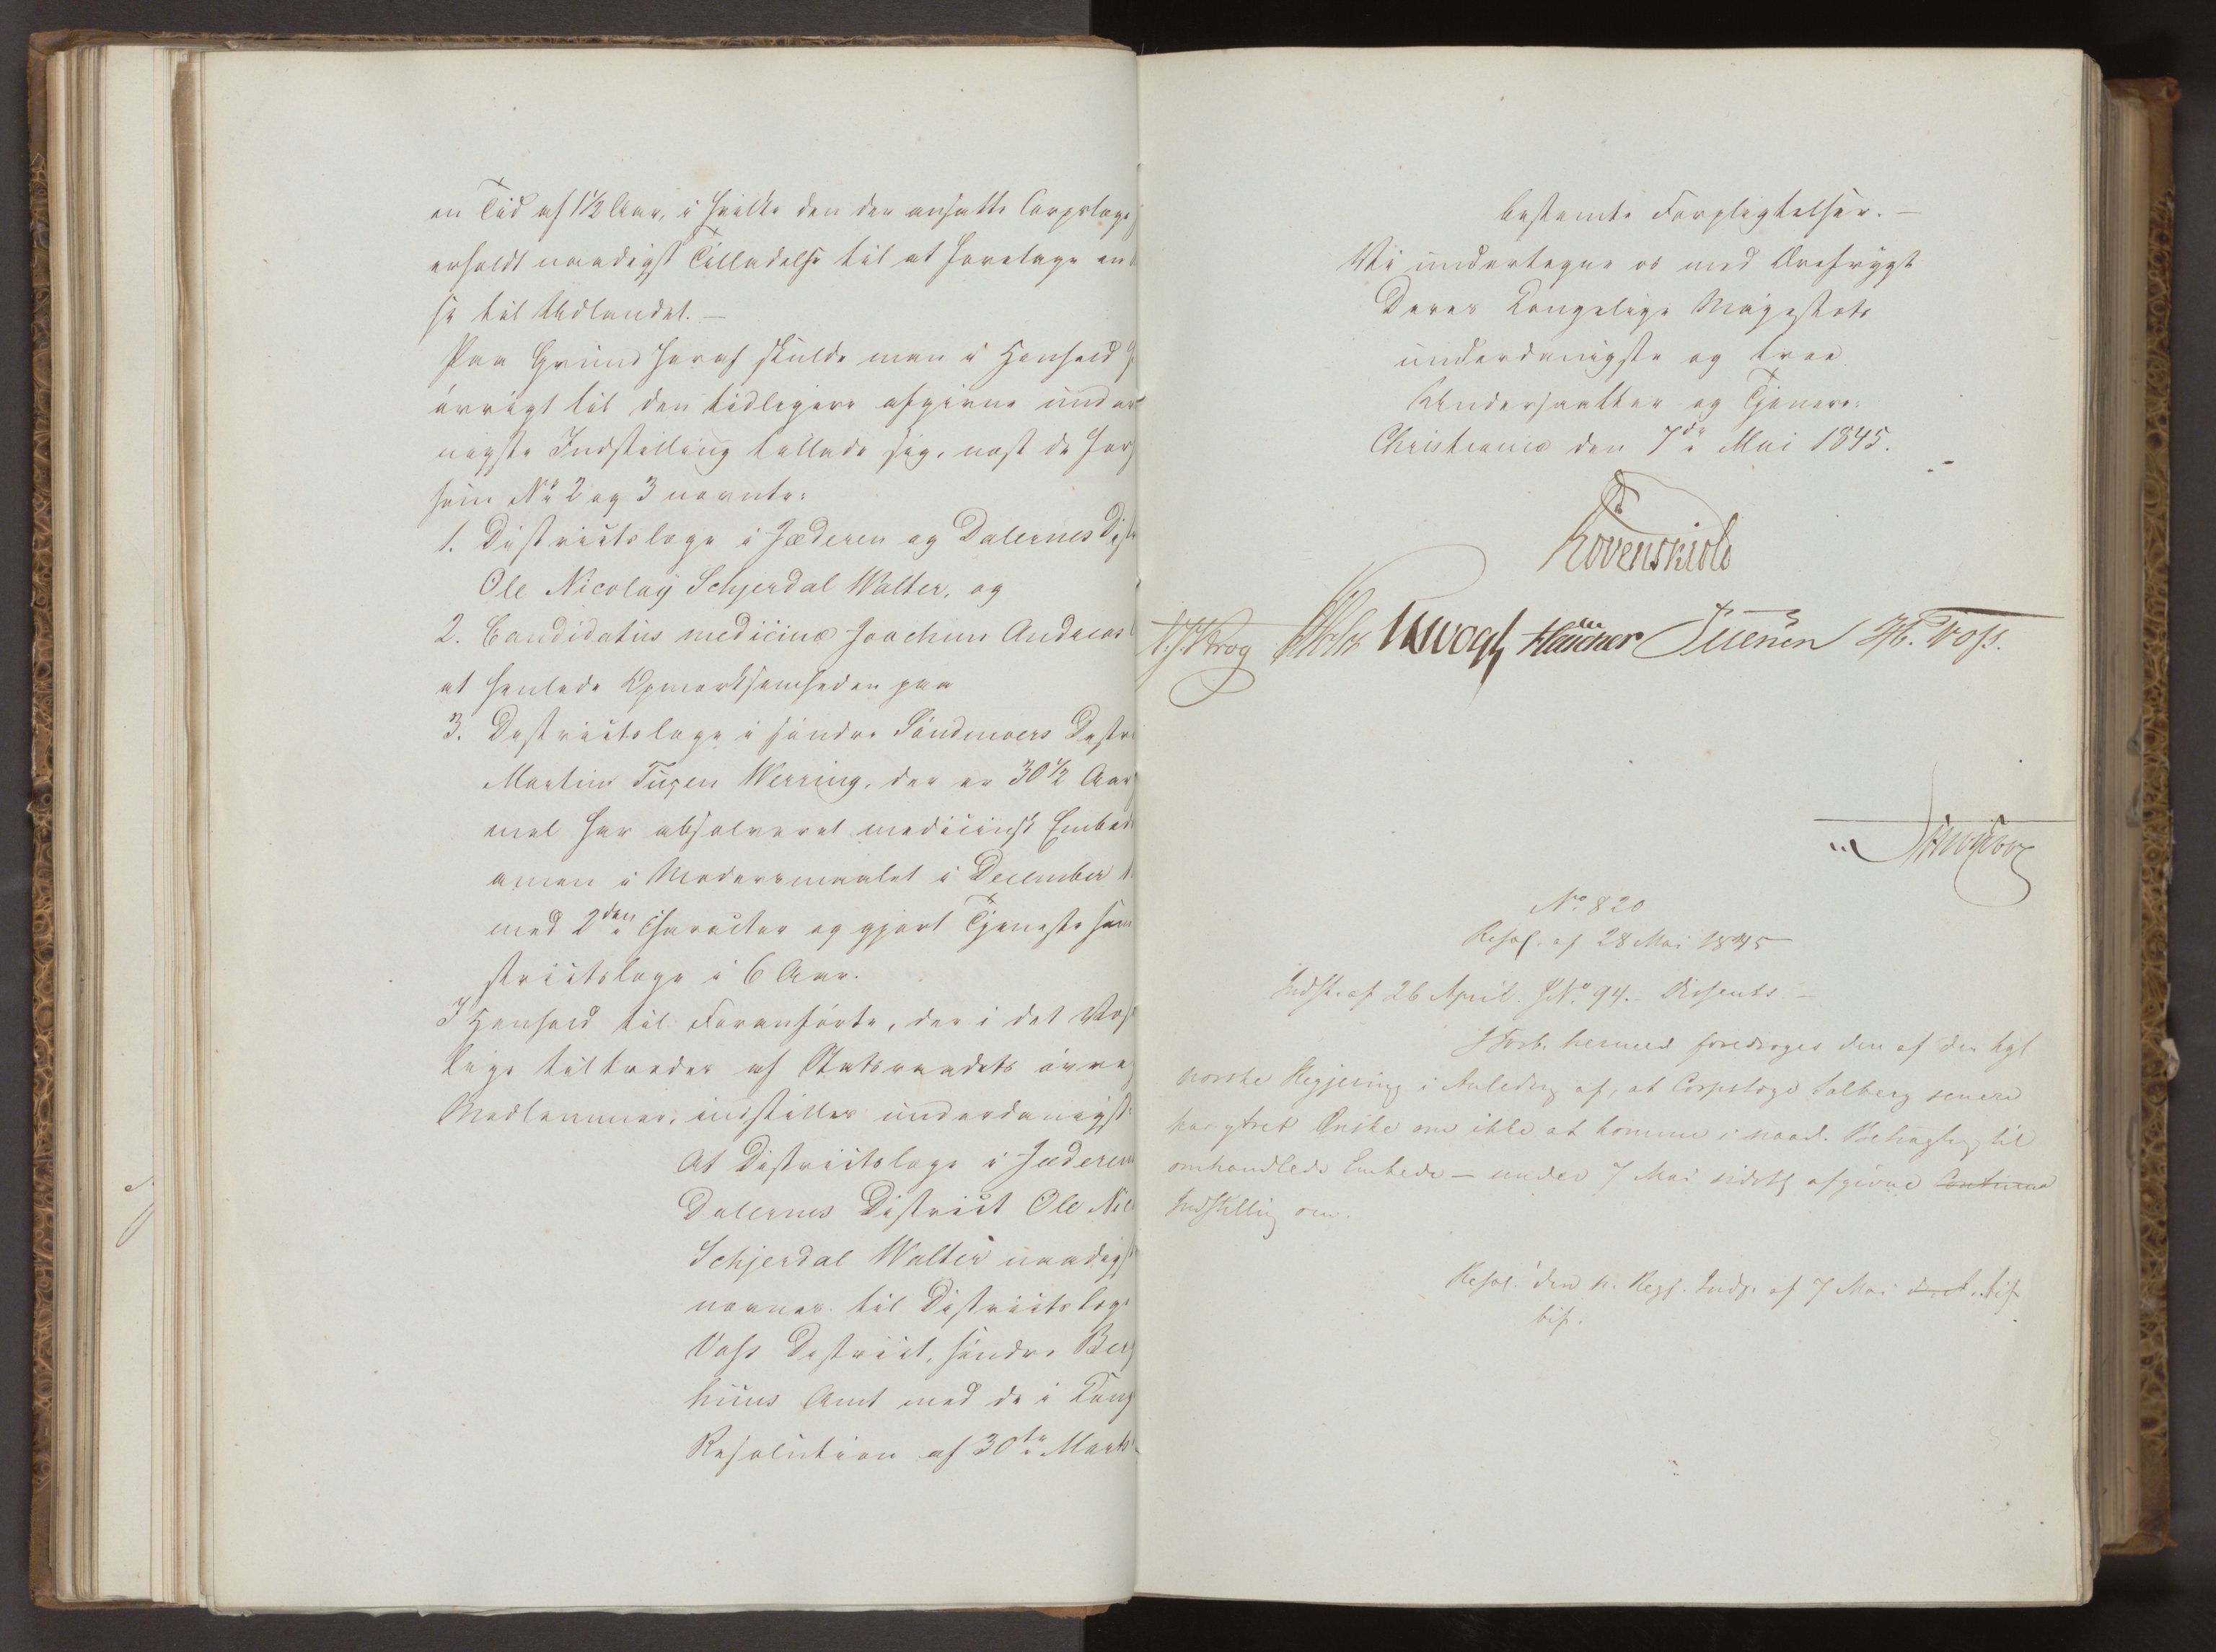 en Tid af 1½ Aar, i hvilke den der ansatte Corpslæge
erholdt naadigst Tilladelse til at foretage en
se til Udlandet. —
Paa Grund heraf skulde man i Henhold
övrigt til den tidligere afgivne under
nigste Indstilling tillade sig, næst de for
som No 2 og 3 nævnte:
1. Districtslæge i Jæderen og Dalernes Distr
Ole Nicolay Schjerdal Walter, og
2. Candidatus medicinæ Joachim Andreas
at henlede Opmærksomheden paa
3. Districtslæge i söndre Söndmoers Distri
Martin Tügen Werring, der er 30½ Aar
mel har absolveret medicinsk Embeds
amen i Modersmaalet i December 1
med 2den Character og gjort Tjeneste som
strictslæge i 6 Aar.
I Henhold til Foranförte, der i det Væs
lige tiltrædes af Statsraadets övrig
Medlemmer, indstilles underdanigst:
At Districtslæge i Jæderen
Dalernes District Ole Nic
Schjerdal Walter naadigst
nævnes til Districtslæge
Voss District, söndre Berg
huus Amt med de i Kong
Resolution af 30te Marts
bestemte Forpligtelser. —
Vi undertegne os med Ærefrygt
Deres Kongelige Majestæts
underdanigste og troe
Undersaatter og Tjenere:
Christiania den 7de Mai 1845.
Lövenskiold
Krog Vogt Petersen H. Voss.
No 820
Resol. af 28 Mai 1845
Indst. af 26 April. JNo 94. – Dissents –
Forb. hermed foredroges den af den kgl
norske Regjering i Anledng af, at Corpslæge Solberg senere
har ytret Ønske om ikke at komme i naad. Betragtng til
omhandlede Embede – under 7 Mai sidstl afgivne
Indstilling om.
Resol. den n. Regj. Inds. af 7 Mai bif.
bif.